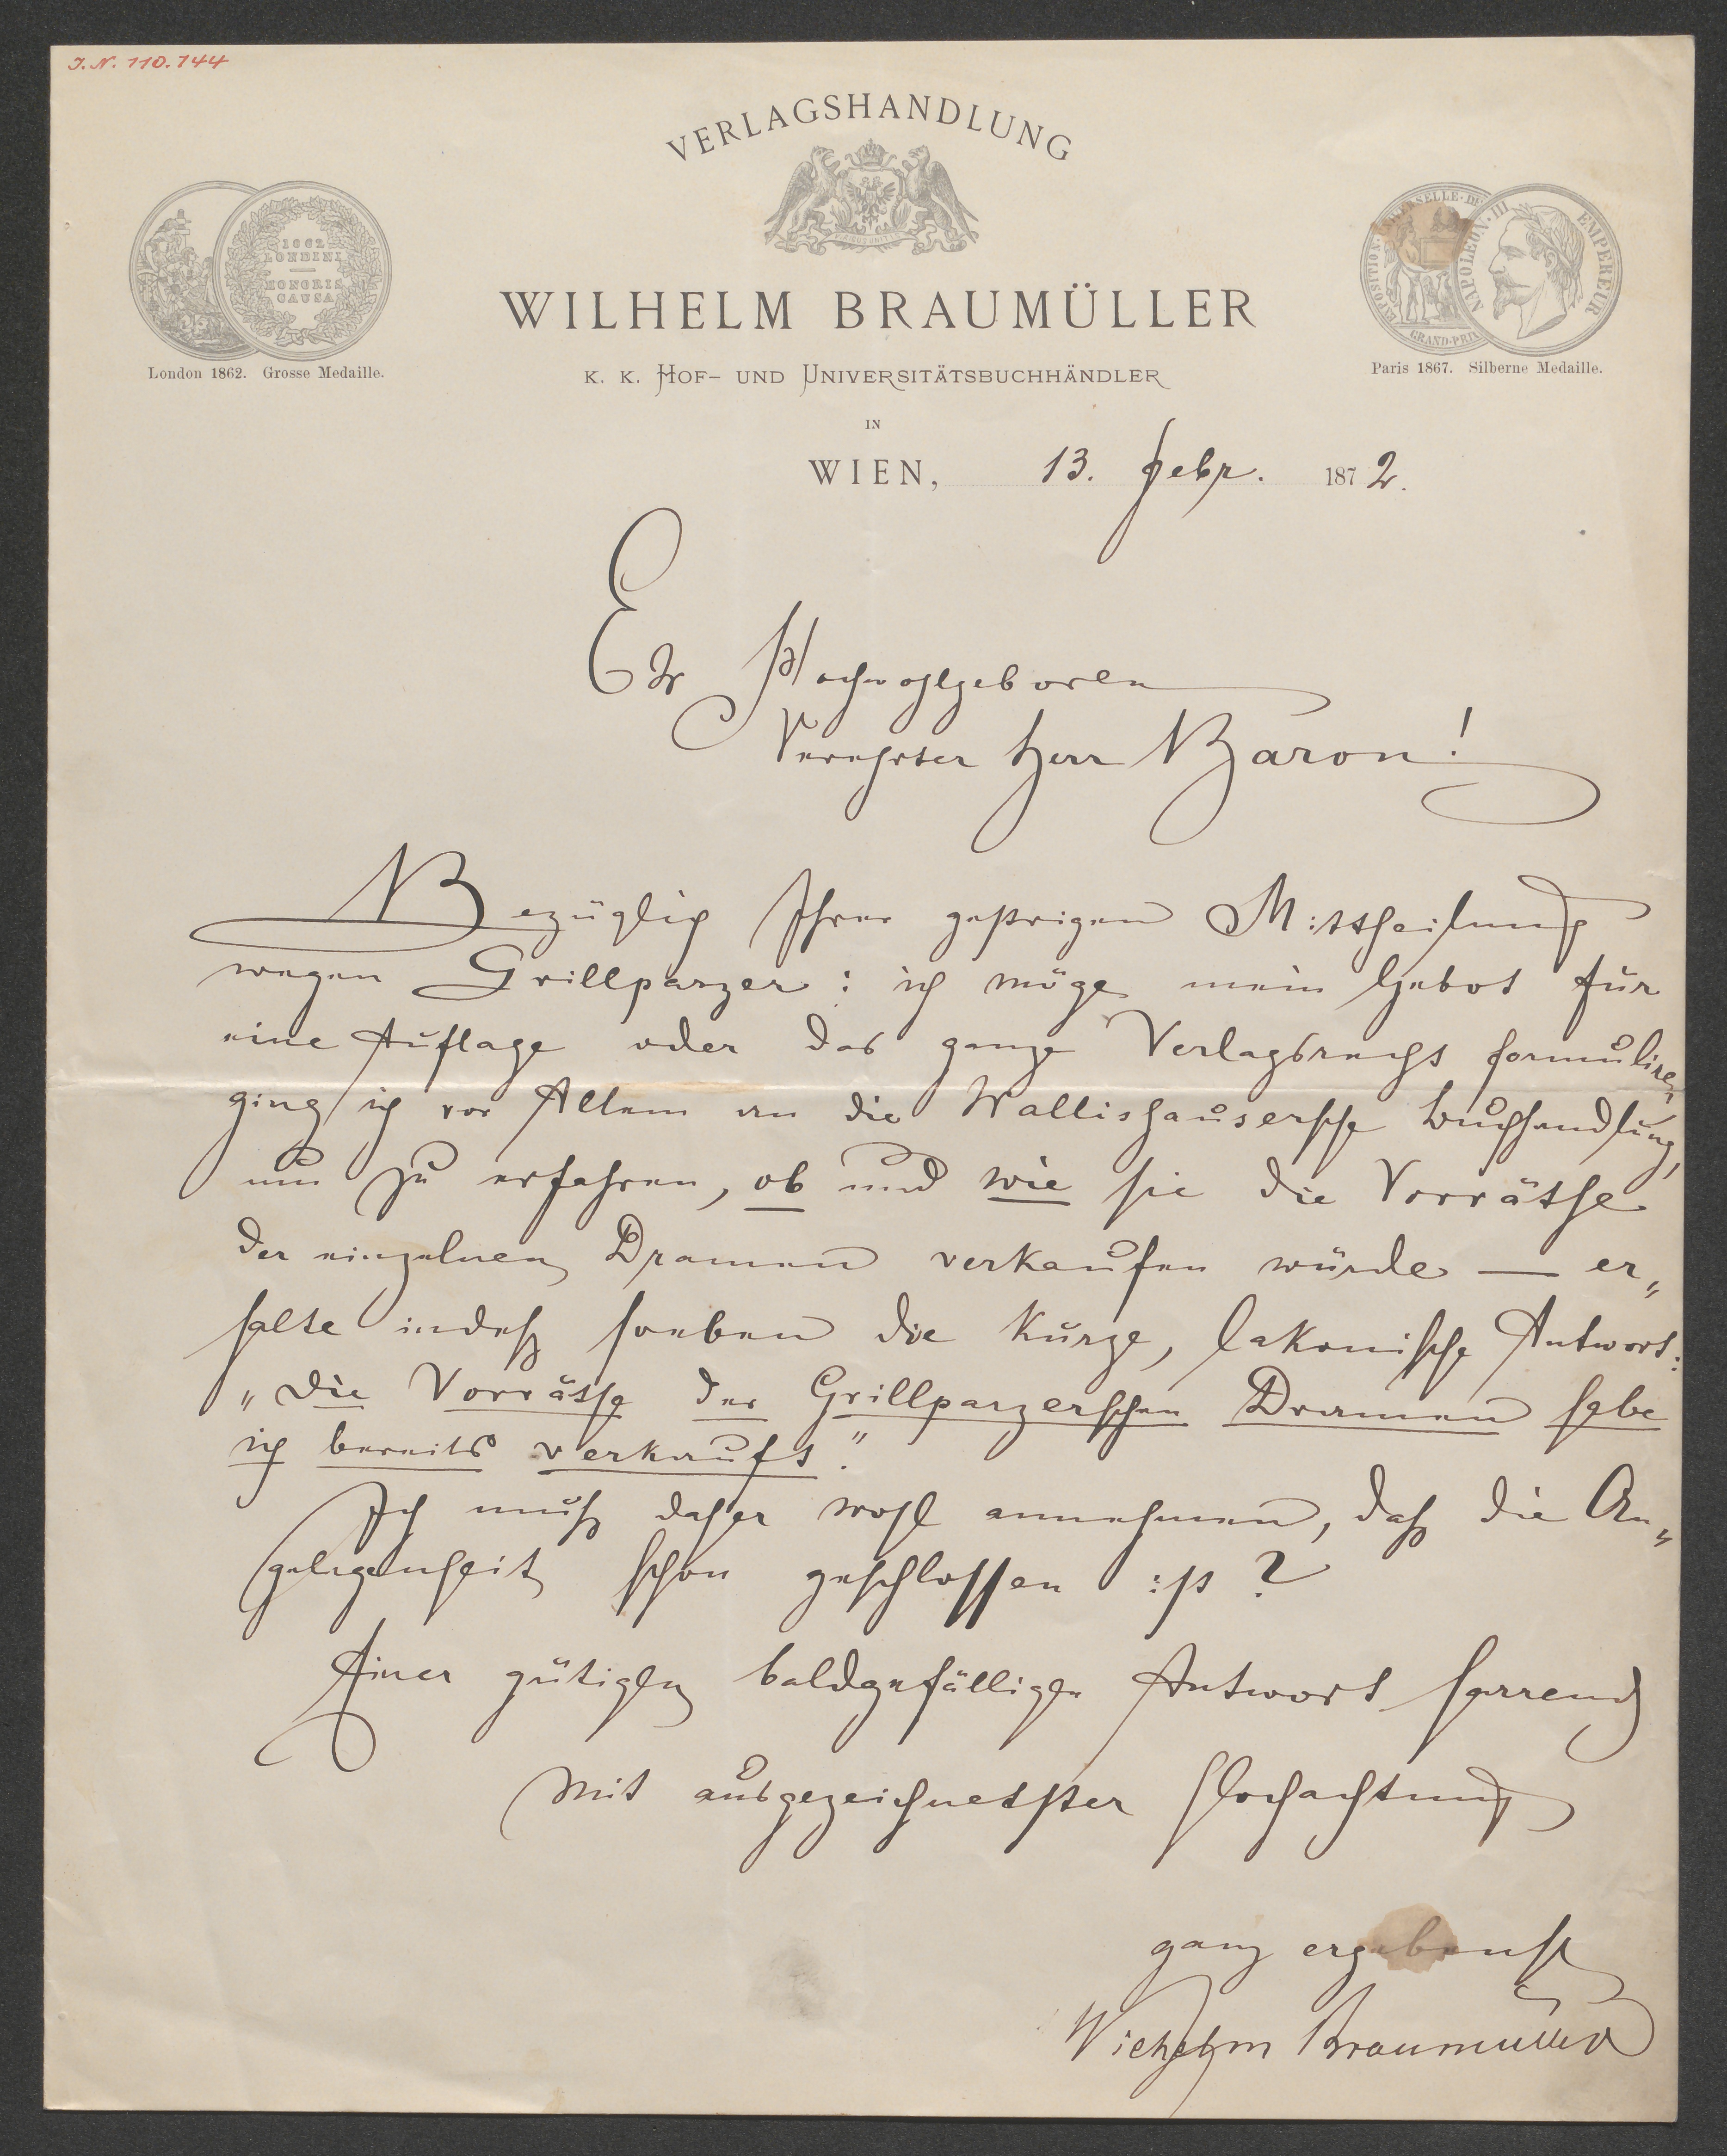 I. N. 110.744
VERLAGSHANDLUNG
1862
LONDINI
HONORIS
CAUSA
London 1862. Grosse Medaille.
NAPOLEON · III EMPEREUR
GRAND-PRIX
Paris 1867. Silberne Medaille.
WILHELM BRAUMÜLLER
K. K. HOF- UND UNIVERSITÄTSBUCHHÄNDLER
IN
WIEN, 13. Febr. 1872.
Er Hochwohlgeboren
Verehrter Herr Baron!
Bezüglich Ihrer gestrigen Mittheilung
wegen Grillparzer: ich möge mein Gebot für
eine Auflage oder das ganze Verlagsrecht formuliren,
ging ich vor Allem an die Wallishausersche Buchhandlung,
um zu erfahren, ob und wie sie die Vorräthe
der einzelnen Dramen verkaufen würde — er„
halte indeß soeben die kurze, lakonische Antwort:
„die Vorräthe der Grillparzerschen Dramen habe
ich bereits verkauft."
Ich muß daher wohl annehmen, daß die An„
gelegenheit schon geschlossen ist?
Einer gütigen baldgefälligen Antwort harrend
mit ausgezeichnetster Hochachtung
ganz ergebenst
Wilhelm Braumüller